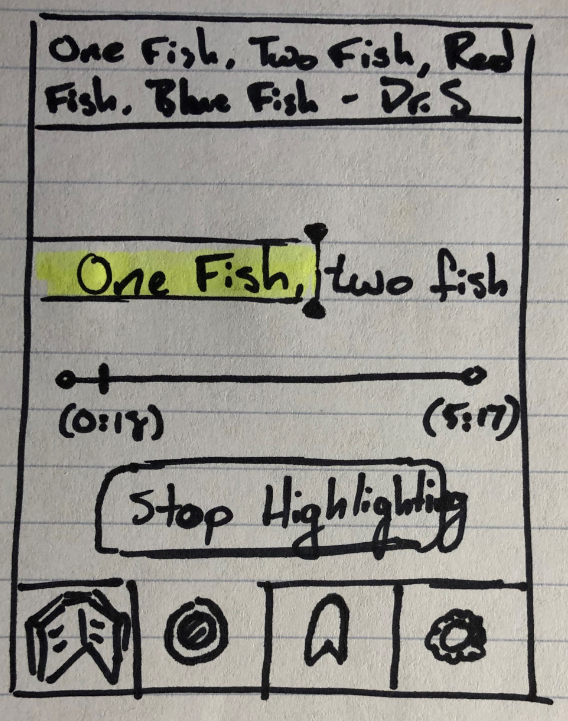 One Fish, Two Fish, Red
Fish, Blue Fish - Dr. S
One Fish, two fish
(0:18) (5:17)
Stop Highlighting